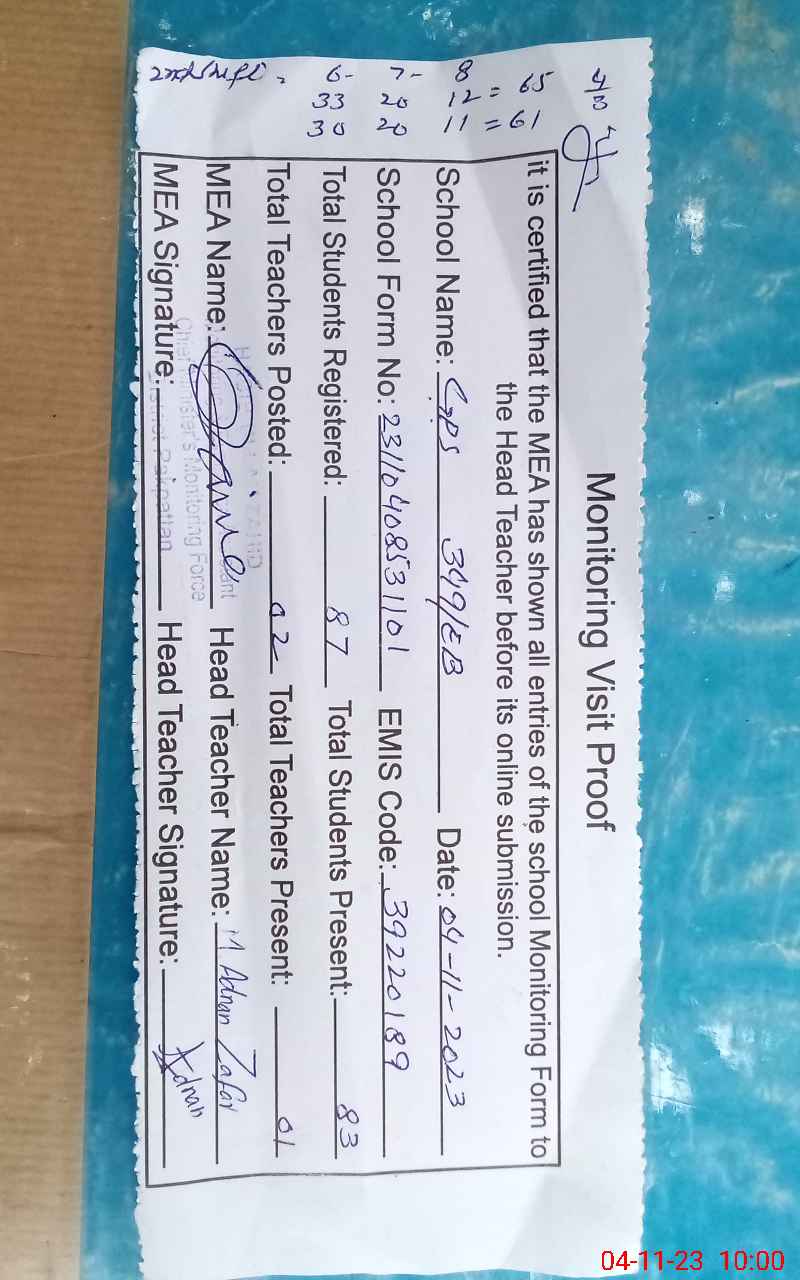 Monitoring Visit Proof
it is certified that the MEA has shown all entries of the school Monitoring Form to
the Head Teacher before its online submission.
School Name: GPS 349/EB Date: 04-11-2023
School Form No: 23110408531101 EMIS Code: 39220189
Total Students Registered: 87 Total Students Present: 83
Total Teachers Posted: 02 Total Teachers Present: 01
MEA Name: Head Teacher Name: M Adnan Zafar
MEA Signature: Head Teacher Signature: Adnan
Chief Minister's Monitoring Force
District Pakpattan
6- 7- 8
33 20 12 = 65
30 20 11 = 61
04-11-23 10:00